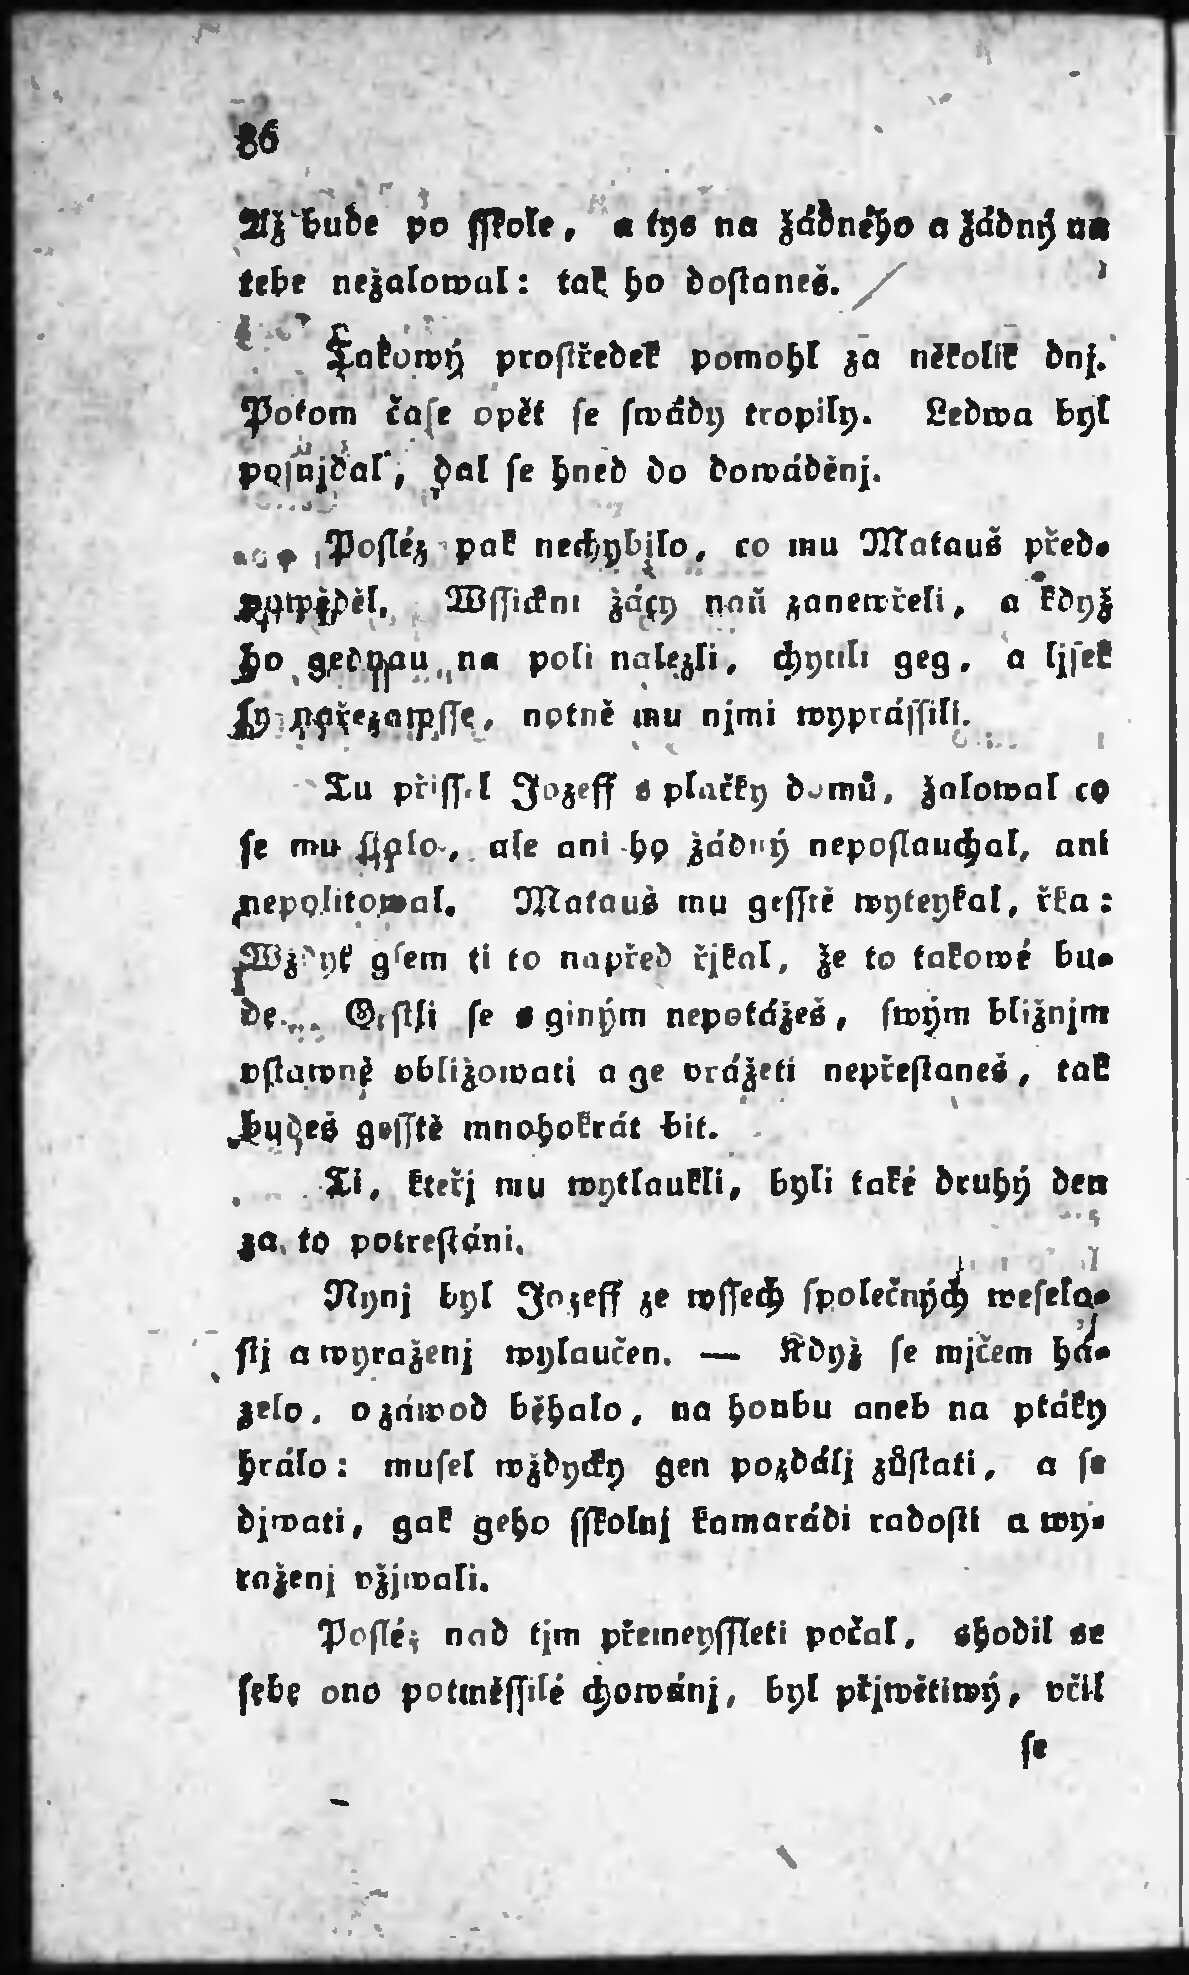 86
Až bude po sskole, a tys na žádného a žádný na
tebe nežalowal: tak ho dostaneš.
Takowý prostředek pomohl za několik dnj.
Potom čase opět se swády tropily. Ledwa byl
posnjdal, dal se hned do dowáděnj.
Posléz pak nechybilo, co mu Matauš před-
powěděl. Wssickni žácy naň zanewřeli, a když
ho gednau na poli nalezli, chytili geg, a ljsek
sy nařezawsse, notně mu njmi wyprássili.
Tu přissel Jozeff s plačky domů, žalowal co
se mu stalo, ale ani ho žádný neposlauchal, ani
nepolitowal. Matauš mu gesstě wyteykal, řka:
Wždyť gsem ti to napřed řjkal, že to takowé bu-
de. Gestli se s giným nepotážeš, swým bližnjm
vstawně vbližowati a ge vrážeti nepřestaneš, tak
budeš gesstě mnohokrát bit.
Ti, kteřj mu wytlaukli, byli také druhý den
za to potrestáni.
Nynj byl Jozeff ze wssech společných wesela-
stj a wyraženj wylaučen. — Když se mjčem há-
zelo, o záwod běhalo, na honbu aneb na ptáky
hrálo: musel wždycky gen pozdálj zůstati, a se
djwati, gak geho sskolnj kamarádi radosti a wy-
raženj vžjwali.
Posléz nad tjm přemeyssleti počal, shodil se
sebe ono potměssilé chowánj, byl přjwětiwý, včil
se